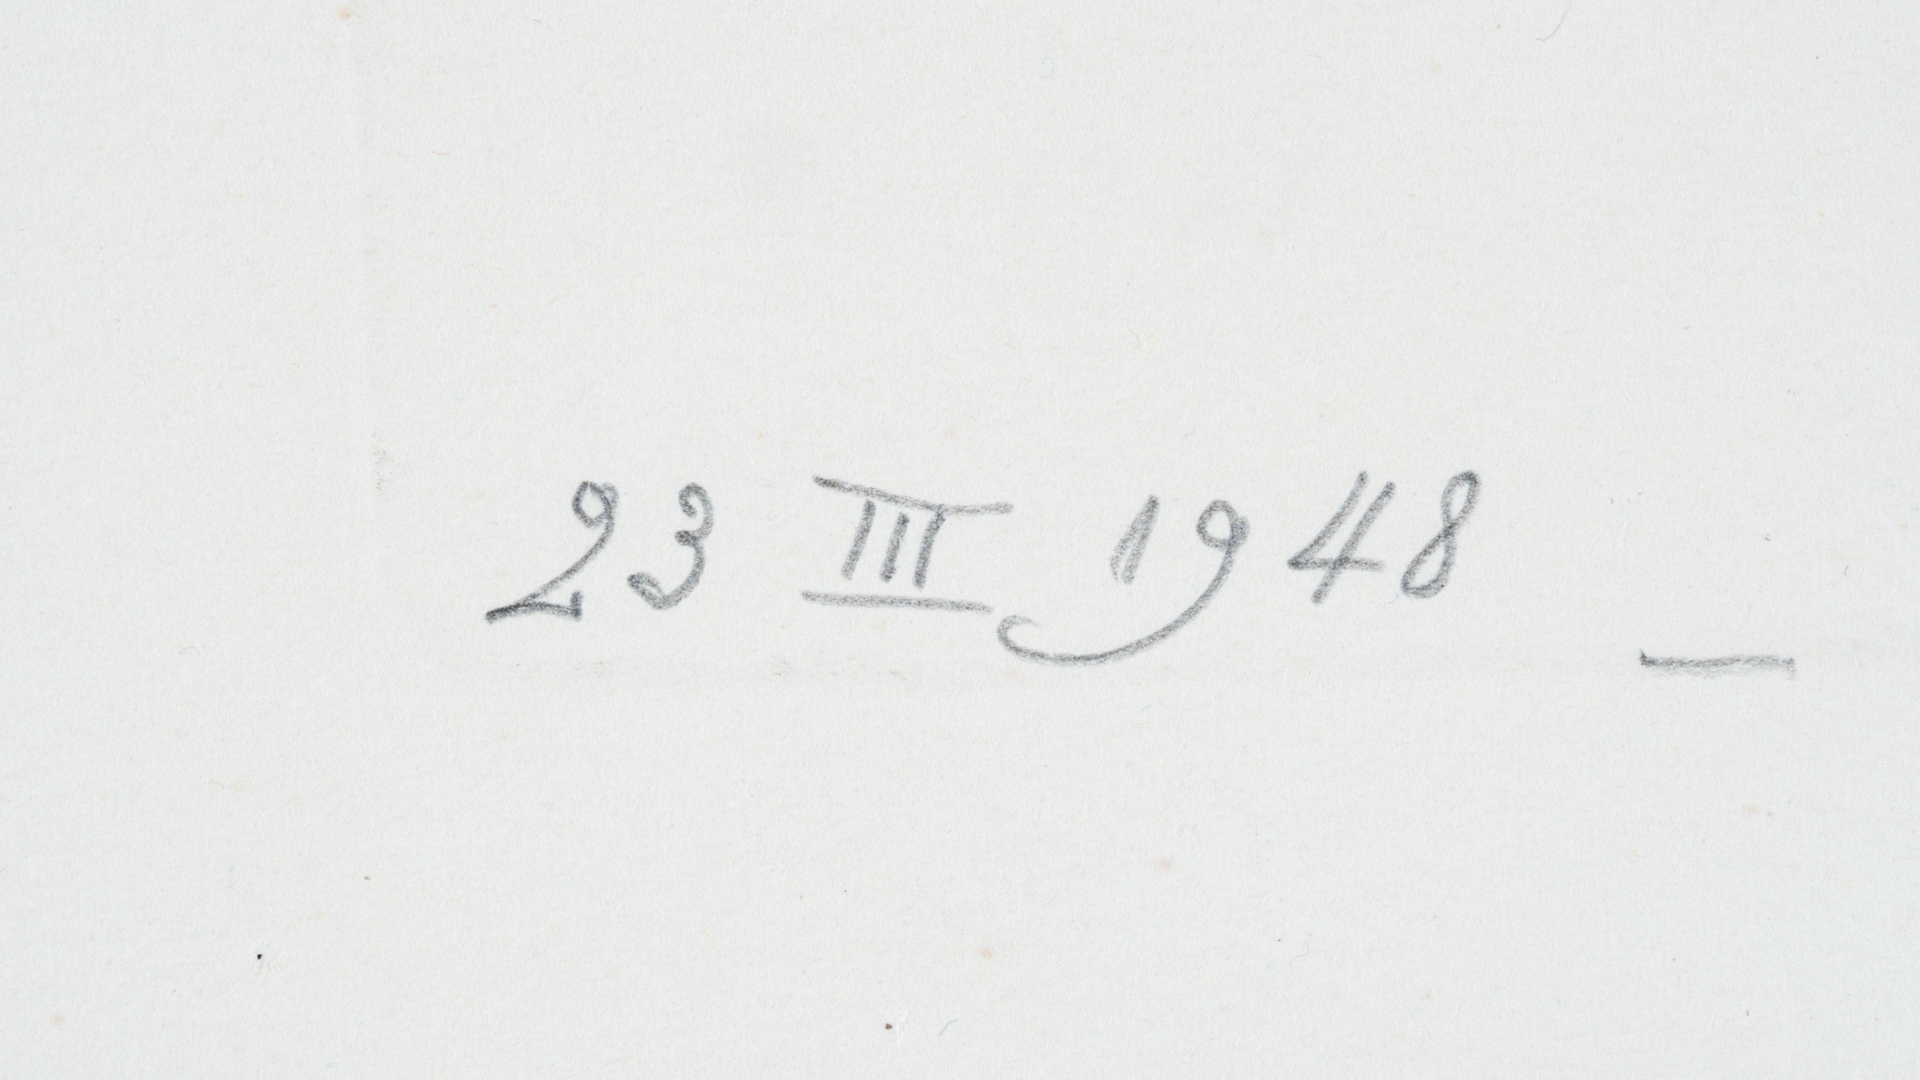 23 III 1948 —